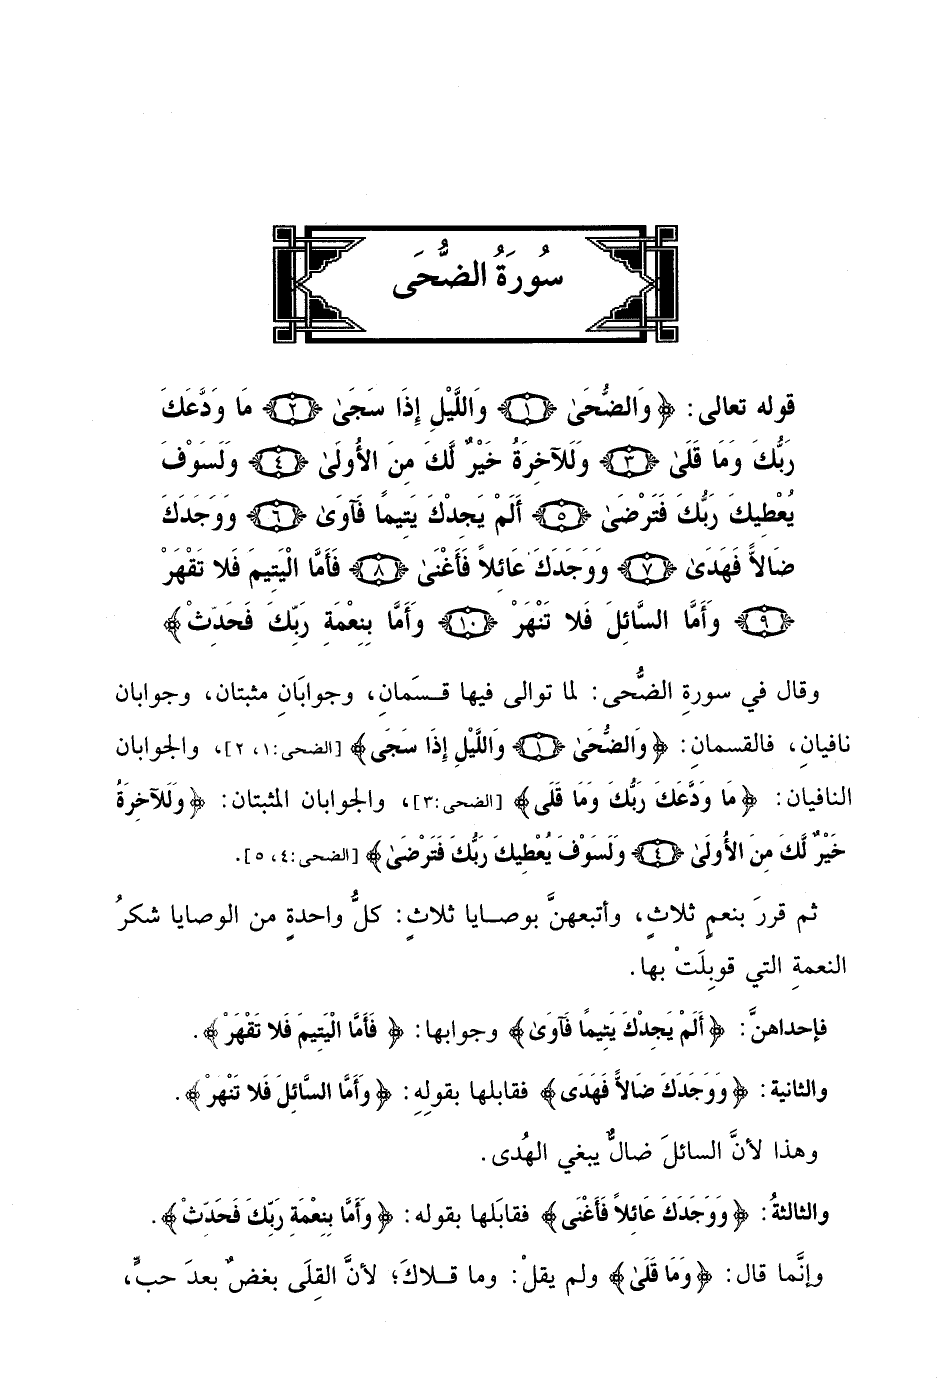 سُورَةُ الضُّحَى
قوله تعالى: ﴿وَالضُّحَىٰ ﴿١﴾ وَاللَّيْلِ إِذَا سَجَىٰ ﴿٢﴾ مَا وَدَّعَكَ
رَبُّكَ وَمَا قَلَىٰ ﴿٣﴾ وَلَلآخِرَةُ خَيْرٌ لَّكَ مِنَ الأُولَىٰ ﴿٤﴾ وَلَسَوْفَ
يُعْطِيكَ رَبُّكَ فَتَرْضَىٰ ﴿٥﴾ أَلَمْ يَجِدْكَ يَتِيمًا فَآوَىٰ ﴿٦﴾ وَوَجَدَكَ
ضَالاًّ فَهَدَىٰ ﴿٧﴾ وَوَجَدَكَ عَائِلاً فَأَغْنَىٰ ﴿٨﴾ فَأَمَّا الْيَتِيمَ فَلا تَقْهَرْ
﴿٩﴾ وَأَمَّا السَّائِلَ فَلا تَنْهَرْ ﴿١٠﴾ وَأَمَّا بِنِعْمَةِ رَبِّكَ فَحَدِّثْ﴾
وقال في سورةِ الضُّحى: لما توالى فيها قسَمانِ، وجوابَانِ مثبتان، وجوابان
نافيانِ، فالقسمانِ: ﴿وَالضُّحَىٰ ﴿١﴾ وَاللَّيْلِ إِذَا سَجَى﴾ [الضحى:١، ٢]، والجوابان
النافيان: ﴿مَا وَدَّعَكَ رَبُّكَ وَمَا قَلَى﴾ [الضحى:٣]، والجوابان المثبتان: ﴿وَلَلآخِرَةُ
خَيْرٌ لَّكَ مِنَ الأُولَىٰ ﴿٤﴾ وَلَسَوْفَ يُعْطِيكَ رَبُّكَ فَتَرْضَىٰ﴾ [الضحى:٤، ٥].
ثم قررَ بنعمٍ ثلاثٍ، وأتبعهنَّ بوصايا ثلاثٍ: كلُّ واحدةٍ من الوصايا شكرُ
النعمةِ التي قوبِلَتْ بها.
فإحداهنَّ: ﴿أَلَمْ يَجِدْكَ يَتِيمًا فَآوَىٰ﴾ وجوابها: ﴿فَأَمَّا الْيَتِيمَ فَلا تَقْهَرْ﴾.
والثانية: ﴿وَوَجَدَكَ ضَالاًّ فَهَدَى﴾ فقابلها بقولِهِ: ﴿وَأَمَّا السَّائِلَ فَلا تَنْهَرْ﴾.
وهذا لأنَّ السائلَ ضالٌّ يبغي الهُدى.
والثالثةُ: ﴿وَوَجَدَكَ عَائِلاً فَأَغْنَى﴾ فقابَلها بقوله: ﴿وَأَمَّا بِنِعْمَةِ رَبِّكَ فَحَدِّثْ﴾.
وإنَّما قال: ﴿وَمَا قَلَىٰ﴾ ولم يقلْ: وما قلاكَ؛ لأنَّ القِلَى بغضٌ بعدَ حبٍّ،